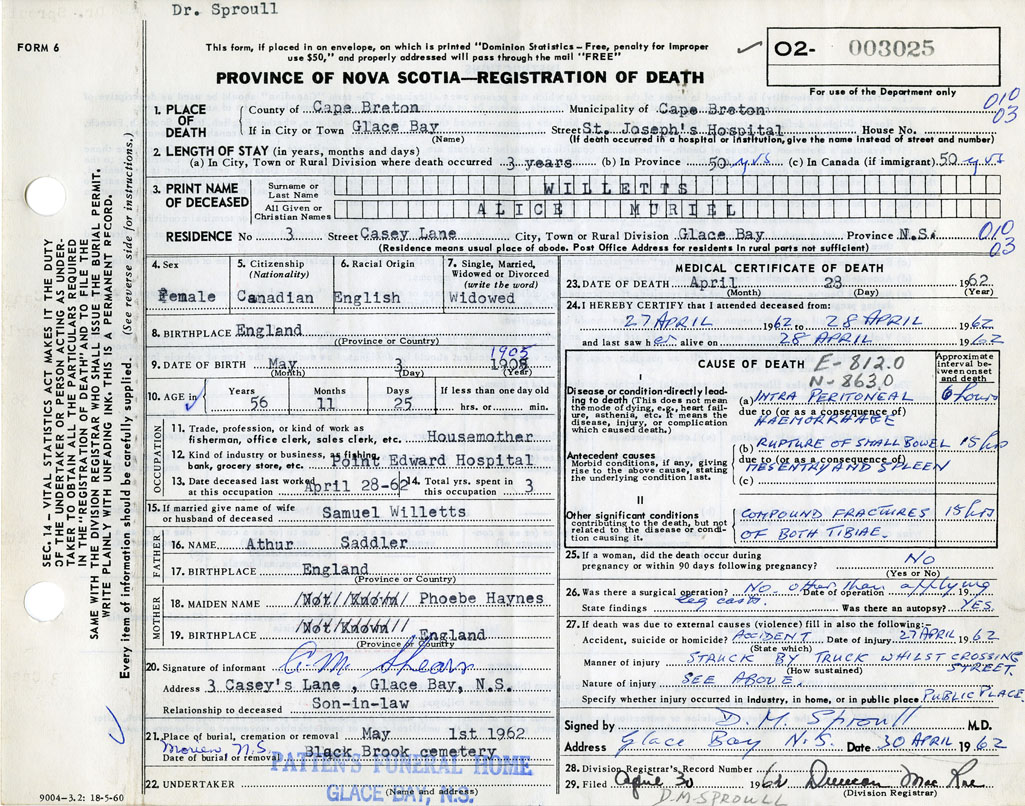 Dr. Sproull
FORM 6
This form, if placed in an envelope, on which is printed "Dominion Statistics – Free, penalty for improper
use $50," and properly addressed will pass through the mail "FREE"
✓ O2- 003025
PROVINCE OF NOVA SCOTIA—REGISTRATION OF DEATH
For use of the Department only
010
03
1. PLACE OF DEATH
County of Cape Breton Municipality of Cape Breton
If in City or Town Glace Bay Street St. Joseph's Hospital House No.
(Name) (If death occurred in a hospital or institution, give the name instead of street and number)
2. LENGTH OF STAY (in years, months and days)
(a) In City, Town or Rural Division where death occurred 3 years (b) In Province 50 yrs (c) In Canada (if immigrant) 50 yrs
3. PRINT NAME OF DECEASED
Surname or Last Name WILLETTS
All Given or Christian Names ALICE MURIEL
RESIDENCE No 3 Street Casey Lane City, Town or Rural Division Glace Bay Province N.S.
(Residence means usual place of abode. Post Office Address for residents in rural parts not sufficient)
010
03
4. Sex
Female
5. Citizenship
(Nationality)
Canadian
6. Racial Origin
English
7. Single, Married,
Widowed or Divorced
(write the word)
Widowed
8. BIRTHPLACE England
(Province or Country)
1905
9. DATE OF BIRTH May 3 1905
(Month) (Day) (Year)
10. AGE in ✓ Years Months Days If less than one day old
56 11 25 hrs. or min.
OCCUPATION
11. Trade, profession, or kind of work as
fisherman, office clerk, sales clerk, etc. Housemother
12. Kind of industry or business, as fishing,
bank, grocery store, etc. Point Edward Hospital
13. Date deceased last worked
at this occupation April 28-62
14. Total yrs. spent in
this occupation 3
15. If married give name of wife
or husband of deceased Samuel Willetts
FATHER
16. NAME Athur Saddler
17. BIRTHPLACE England
(Province or Country)
MOTHER
18. MAIDEN NAME /Not//Known/ Phoebe Haynes
19. BIRTHPLACE /Not/Known// England
(Province or Country)
20. Signature of informant
Address 3 Casey's Lane , Glace Bay, N.S.
Relationship to deceased Son-in-law
21. Place of burial, cremation or removal May 1st 1962
N.S
Date of burial or removal Black Brook cemetery
PATTEN'S FUNERAL HOME
22. UNDERTAKER
(Name and address)
GLACE BAY, N.S.
9004–3.2: 18-5-60
MEDICAL CERTIFICATE OF DEATH
23. DATE OF DEATH April 28 1962
(Month) (Day) (Year)
24. I HEREBY CERTIFY that I attended deceased from:
27 APRIL 1962 to 28 APRIL 1962
and last saw her alive on 28 APRIL 1962
CAUSE OF DEATH E-812.0
N-863.0
Approximate
interval be-
tween onset
and death
I
Disease or condition directly lead-
ing to death (This does not mean
the mode of dying, e.g., heart fail-
ure, asthenia, etc. It means the
disease, injury, or complication
which caused death.)
(a) INTRA PERITONEAL 6 hours
due to (or as a consequence of)
HAEMORRHAGE
Antecedent causes
Morbid conditions, if any, giving
rise to the above cause, stating
the underlying condition last.
RUPTURE OF SMALL BOWEL 15 hrs
(b)
due to (or as a consequence of)
MESENTRY AND SPLEEN
(c)
II
Other significant conditions
contributing to the death, but not
related to the disease or condi-
tion causing it.
COMPOUND FRACTURES 15 hrs
OF BOTH TIBIAE.
25. If a woman, did the death occur during
pregnancy or within 90 days following pregnancy? NO
(Yes or No)
26. Was there a surgical operation? No other than applying
leg casts. Date of operation
State findings Was there an autopsy? YES.
27. If death was due to external causes (violence) fill in also the following:–
Accident, suicide or homicide? ACCIDENT Date of injury 27 APRIL 1962
(State which)
Manner of injury STRUCK BY TRUCK WHILST CROSSING
STREET.
(How sustained)
Nature of injury SEE ABOVE.
Specify whether injury occurred in industry, in home, or in public place PUBLIC PLACE
Signed by D. M. Sproull M.D.
Address Glace Bay N.S. Date 30 APRIL 1962
28. Division Registrar's Record Number
29. Filed April 30 1962 Duncan Mac Rae
(Division Registrar)
D.M. SPROULL
SEC. 14 – VITAL STATISTICS ACT MAKES IT THE DUTY
OF THE UNDERTAKER OR PERSON ACTING AS UNDER-
TAKER TO OBTAIN ALL THE PARTICULARS REQUIRED
IN THE "REGISTRATION OF DEATH" AND TO FILE THE
SAME WITH THE DIVISION REGISTRAR WHO SHALL ISSUE THE BURIAL PERMIT.
WRITE PLAINLY WITH UNFADING INK. THIS IS A PERMANENT RECORD.
Every item of information should be carefully supplied. (See reverse side for instructions.)